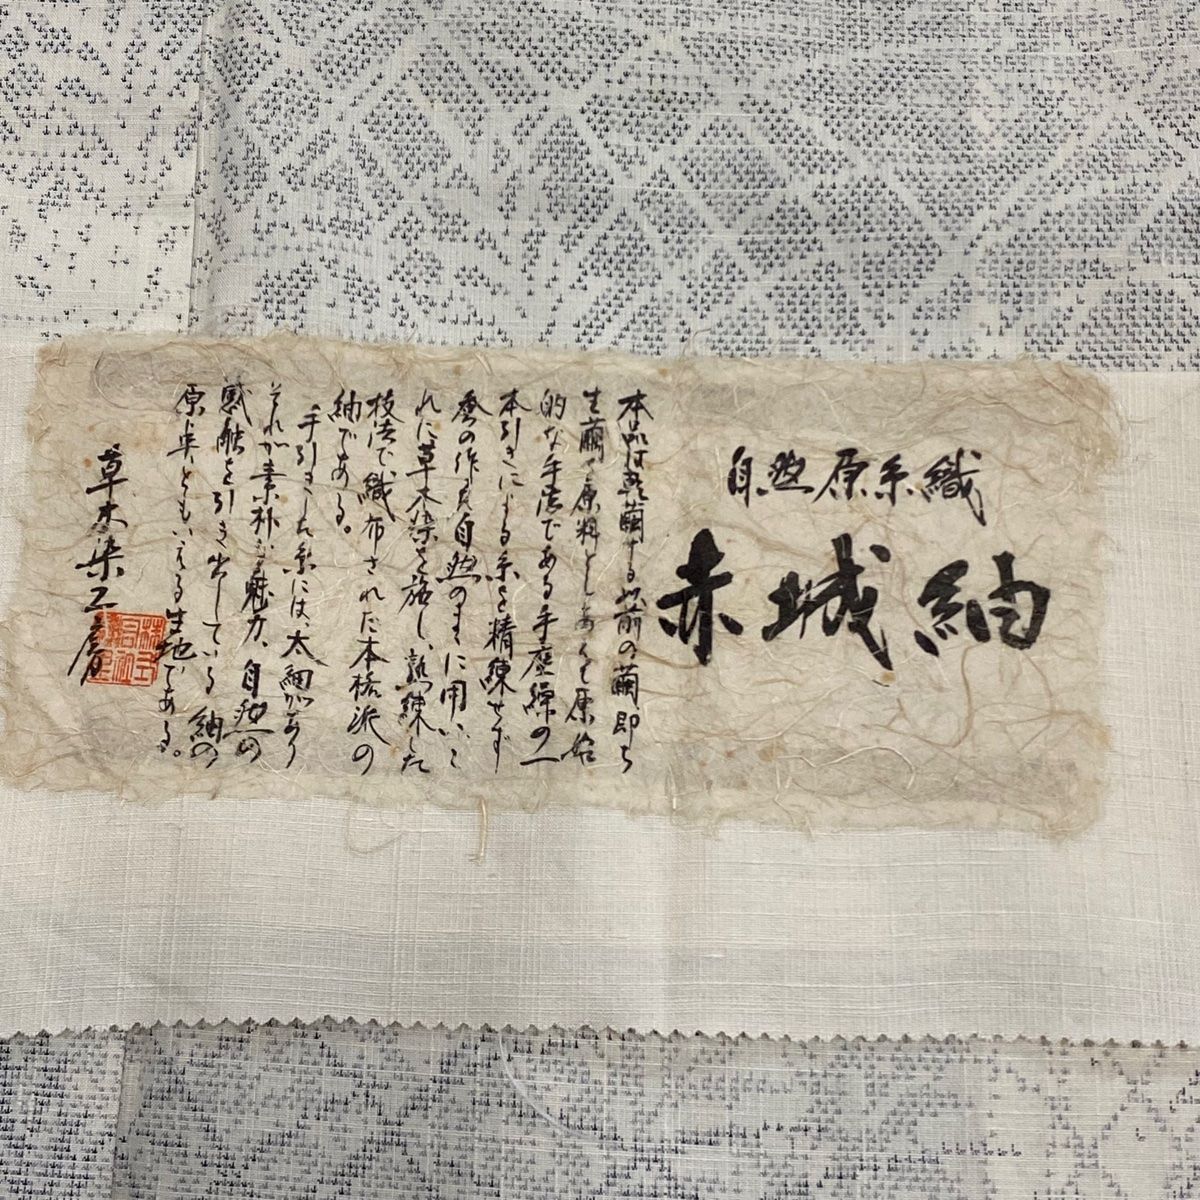 自然原糸織
赤城紬
本品は乾繭する以前の繭即ち
生繭を原料としあくまで原始
的な手法である手座繰の一
本引きによる糸を精練せず
蚕の作る自然のままに用いこ
れに草木染を施し、熟練した
技法で織布された本格派の
紬である。
手引きした糸には、太細があり
それが素朴な魅力、自然の
感触を引き出している紬の
原点ともいえる生地である。
草木染工房
株式
会社